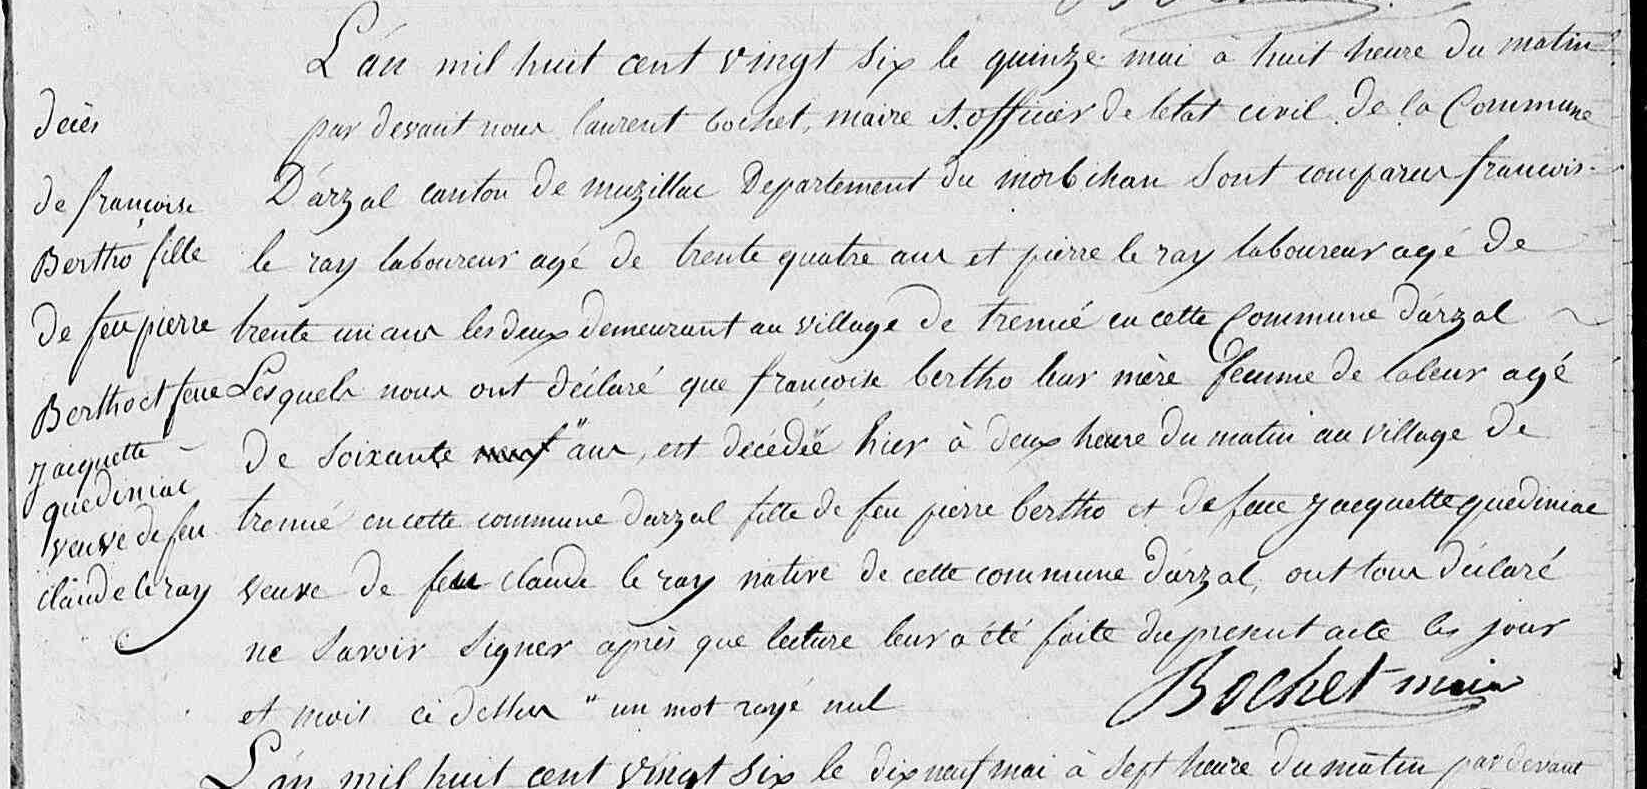 décès
de françoise
Bertho fille
de feu pierre
Bertho et feue
jacquette
quediniac
veuve de feu
claude le ray
L'án mil huit cent vingt six le quinze mai à huit heure du matin
par devant nous laurent bochet, maire et officier de letat civil de la Commune
D'árzal canton de muzillac Departement du morbihan sont comparus francois
le ray laboureur agé de trente quatre ans et pierre le ray laboureur agé de
trente un ans les deux demeurant au village de trenué en cette Commune d'árzal
Lesquels nous ont déclaré que françoise bertho leur mère femme de labeur agé
de soixante neuf " ans, est décédée hier à deux heure du matin au village de
trenué en cette commune darzal fille de feu pierre bertho et de feue jacquette quediniac
veuve de feu claude le ray native de cette commune d'árzal, ont tous déclaré
ne savoir signer après que lecture leur a été faite du present acte les jour
et mois ci dessus " un mot rayé nul
Bochet maire
L'án mil huit cent vingt six le dix neuf mai à sept heure du matin par devant